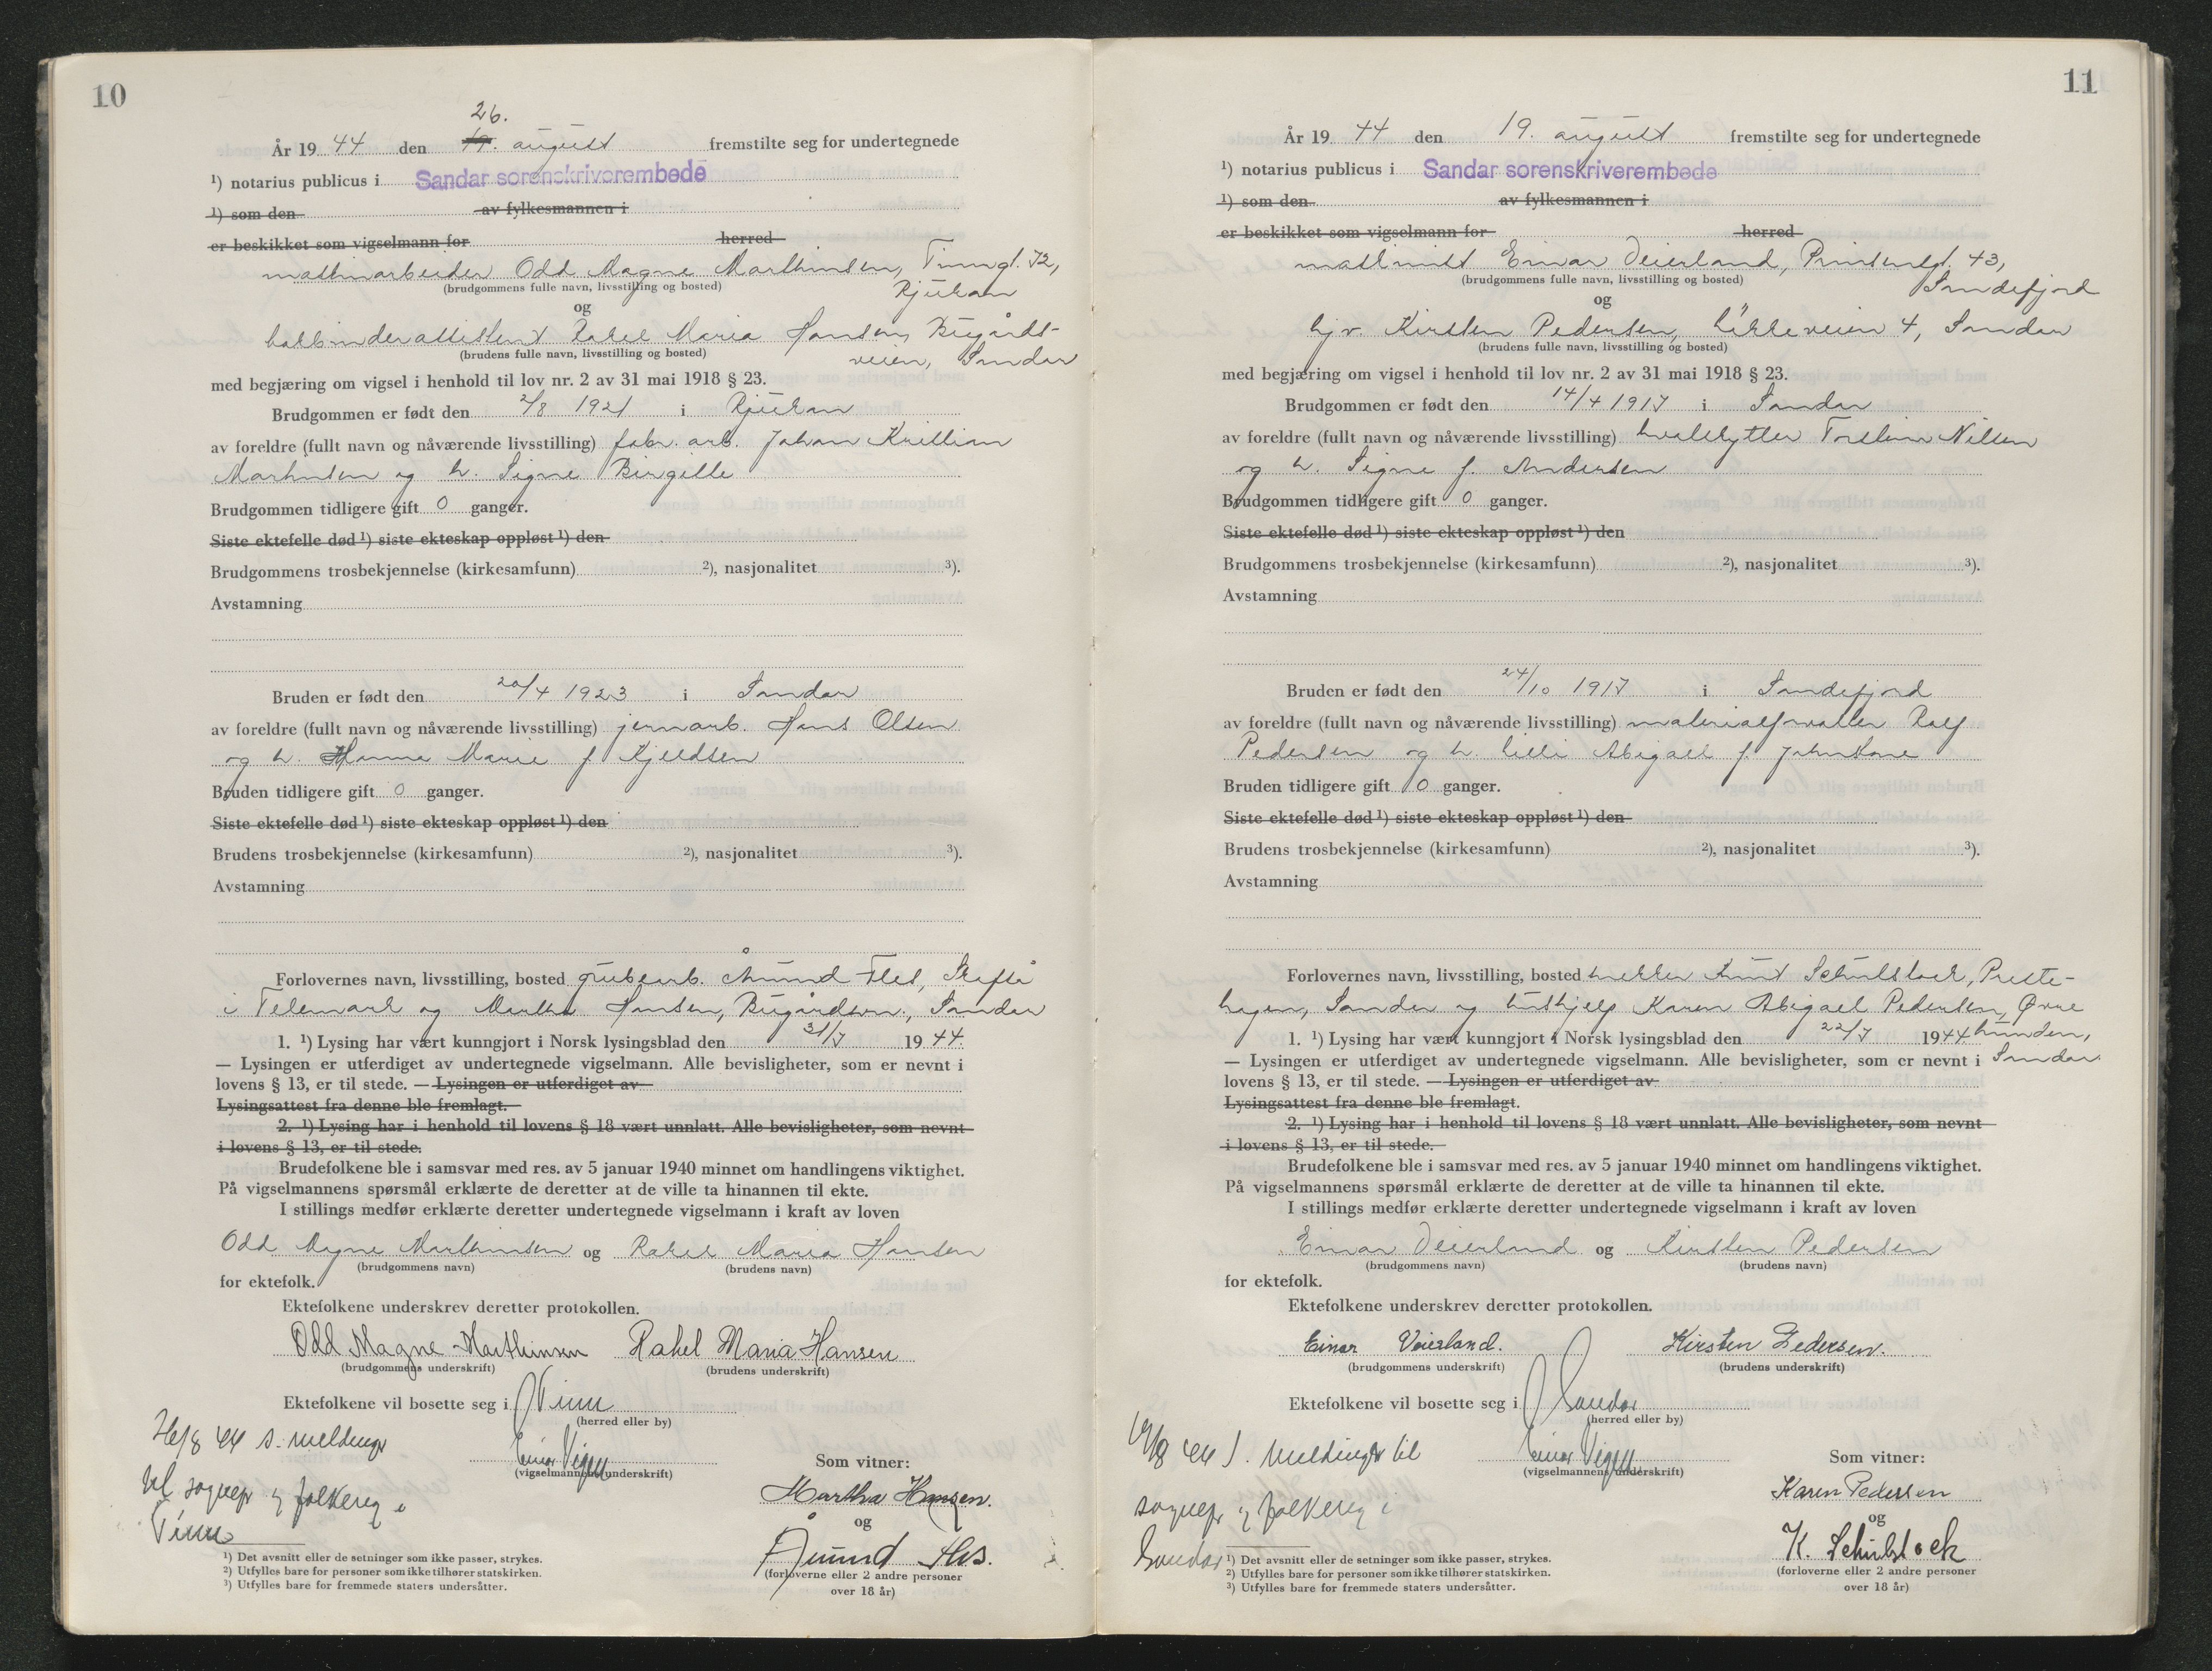 10
26.
År 19 44 den 19. august fremstilte seg for undertegnede
1) notarius publicus i Sandar sorenskriverembede
1) som den av fylkesmannen i
er beskikket som vigselmann for herred
maskinarbeider Odd Magne Marthinsen, Tinngt. 72,
(brudgommens fulle navn, livsstilling og bosted)
Rjukan
og
Rakel Maria Hansen, Bugårds-
(brudens fulle navn, livsstilling og bosted)
veien, Sandar
med begjæring om vigsel i henhold til lov nr. 2 av 31 mai 1918 § 23.
Brudgommen er født den 2/8 1921 i Rjukan
av foreldre (fullt navn og nåværende livsstilling) fabr. arb. Johan Kristian
Marthinsen og h. Signe Birgitte
Brudgommen tidligere gift 0 ganger.
Siste ektefelle død 1) siste ekteskap oppløst 1) den
Brudgommens trosbekjennelse (kirkesamfunn) 2), nasjonalitet 3).
Avstamning
Bruden er født den 20/4 1923 i Sandar
av foreldre (fullt navn og nåværende livsstilling) jernarb. Hans Olsen
og h. Hanna Marie f. Kjeldsen
Bruden tidligere gift 0 ganger.
Siste ektefelle død 1) siste ekteskap oppløst 1) den
Brudens trosbekjennelse (kirkesamfunn) 2), nasjonalitet 3).
Avstamning
Forlovernes navn, livsstilling, bosted grubearb. Åmund
i Telemark og Martha Hansen, Bugårdsvn., Sandar
1. 1) Lysing har vært kunngjort i Norsk lysingsblad den 31/7 19 44.
— Lysingen er utferdiget av undertegnede vigselmann. Alle bevisligheter, som er nevnt i
lovens § 13, er til stede. — Lysingen er utferdiget av
Lysingsattest fra denne ble fremlagt.
2. 1) Lysing har i henhold til lovens § 18 vært unnlatt. Alle bevisligheter, som nevnt
i lovens § 13, er til stede.
Brudefolkene ble i samsvar med res. av 5 januar 1940 minnet om handlingens viktighet.
På vigselmannens spørsmål erklærte de deretter at de ville ta hinannen til ekte.
I stillings medfør erklærte deretter undertegnede vigselmann i kraft av loven
Odd Magne Marthinsen og Rakel Maria Hansen
(brudgommens navn) (brudens navn)
for ektefolk.
Ektefolkene underskrev deretter protokollen.
Odd Magne Marthinsen Rakel Maria Hansen
(brudgommens underskrift) (brudens underskrift)
Ektefolkene vil bosette seg i Tinn
(herred eller by)
26/8 44 s. meldinger
Einar Vigen
(vigselmannens underskrift)
Som vitner:
til sognepr og folkereg i
Martha Hansen.
Tinn
og
Åmund
(forloverne eller 2 andre personer
over 18 år)
1) Det avsnitt eller de setninger som ikke passer, strykes.
2) Utfylles bare for personer som ikke tilhører statskirken.
3) Utfylles bare for fremmede staters undersåtter.
11
År 19 44 den 19. august fremstilte seg for undertegnede
1) notarius publicus i Sandar sorenskriverembede
1) som den av fylkesmannen i
er beskikket som vigselmann for herred
maskinist Einar Veierland, Prinsensgt. 43,
(brudgommens fulle navn, livsstilling og bosted)
Sandefjord
og
hjv. Kirsten Pedersen, Løkkeveien 4, Sandar
(brudens fulle navn, livsstilling og bosted)
med begjæring om vigsel i henhold til lov nr. 2 av 31 mai 1918 § 23.
Brudgommen er født den 14/4 1917 i Sandar
av foreldre (fullt navn og nåværende livsstilling) hvalskytter Torstein Nilsen
og h. Signe f. Andersen
Brudgommen tidligere gift 0 ganger.
Siste ektefelle død 1) siste ekteskap oppløst 1) den
Brudgommens trosbekjennelse (kirkesamfunn) 2), nasjonalitet 3).
Avstamning
Bruden er født den 24/10 1917 i Sandefjord
av foreldre (fullt navn og nåværende livsstilling) materialforvalter Ralf
Pedersen og h. Lilli Abigael f. Johnsone
Bruden tidligere gift 0 ganger.
Siste ektefelle død 1) siste ekteskap oppløst 1) den
Brudens trosbekjennelse (kirkesamfunn) 2), nasjonalitet 3).
Avstamning
Forlovernes navn, livsstilling, bosted Knut Schulstock, Preste-
hagen, Sandar og hushjelp Karen Abigael Pedersen, Øvre
1. 1) Lysing har vært kunngjort i Norsk lysingsblad den 22/7 19 44
— Lysingen er utferdiget av undertegnede vigselmann. Alle bevisligheter, som er nevnt i Sandar
lovens § 13, er til stede. — Lysingen er utferdiget av
Lysingsattest fra denne ble fremlagt.
2. 1) Lysing har i henhold til lovens § 18 vært unnlatt. Alle bevisligheter, som nevnt
i lovens § 13, er til stede.
Brudefolkene ble i samsvar med res. av 5 januar 1940 minnet om handlingens viktighet.
På vigselmannens spørsmål erklærte de deretter at de ville ta hinannen til ekte.
I stillings medfør erklærte deretter undertegnede vigselmann i kraft av loven
Einar Veierland og Kirsten Pedersen
(brudgommens navn) (brudens navn)
for ektefolk.
Ektefolkene underskrev deretter protokollen.
Einar Veierland. Kirsten Pedersen.
(brudgommens underskrift) (brudens underskrift)
Ektefolkene vil bosette seg i Sandar
(herred eller by)
19/8 44 s. meldinger til
Einar Vigen
(vigselmannens underskrift)
Som vitner:
sognepr og folkereg i
Karen Pedersen
Sandar
og
K. Schulstock
(forloverne eller 2 andre personer
over 18 år)
1) Det avsnitt eller de setninger som ikke passer, strykes.
2) Utfylles bare for personer som ikke tilhører statskirken.
3) Utfylles bare for fremmede staters undersåtter.